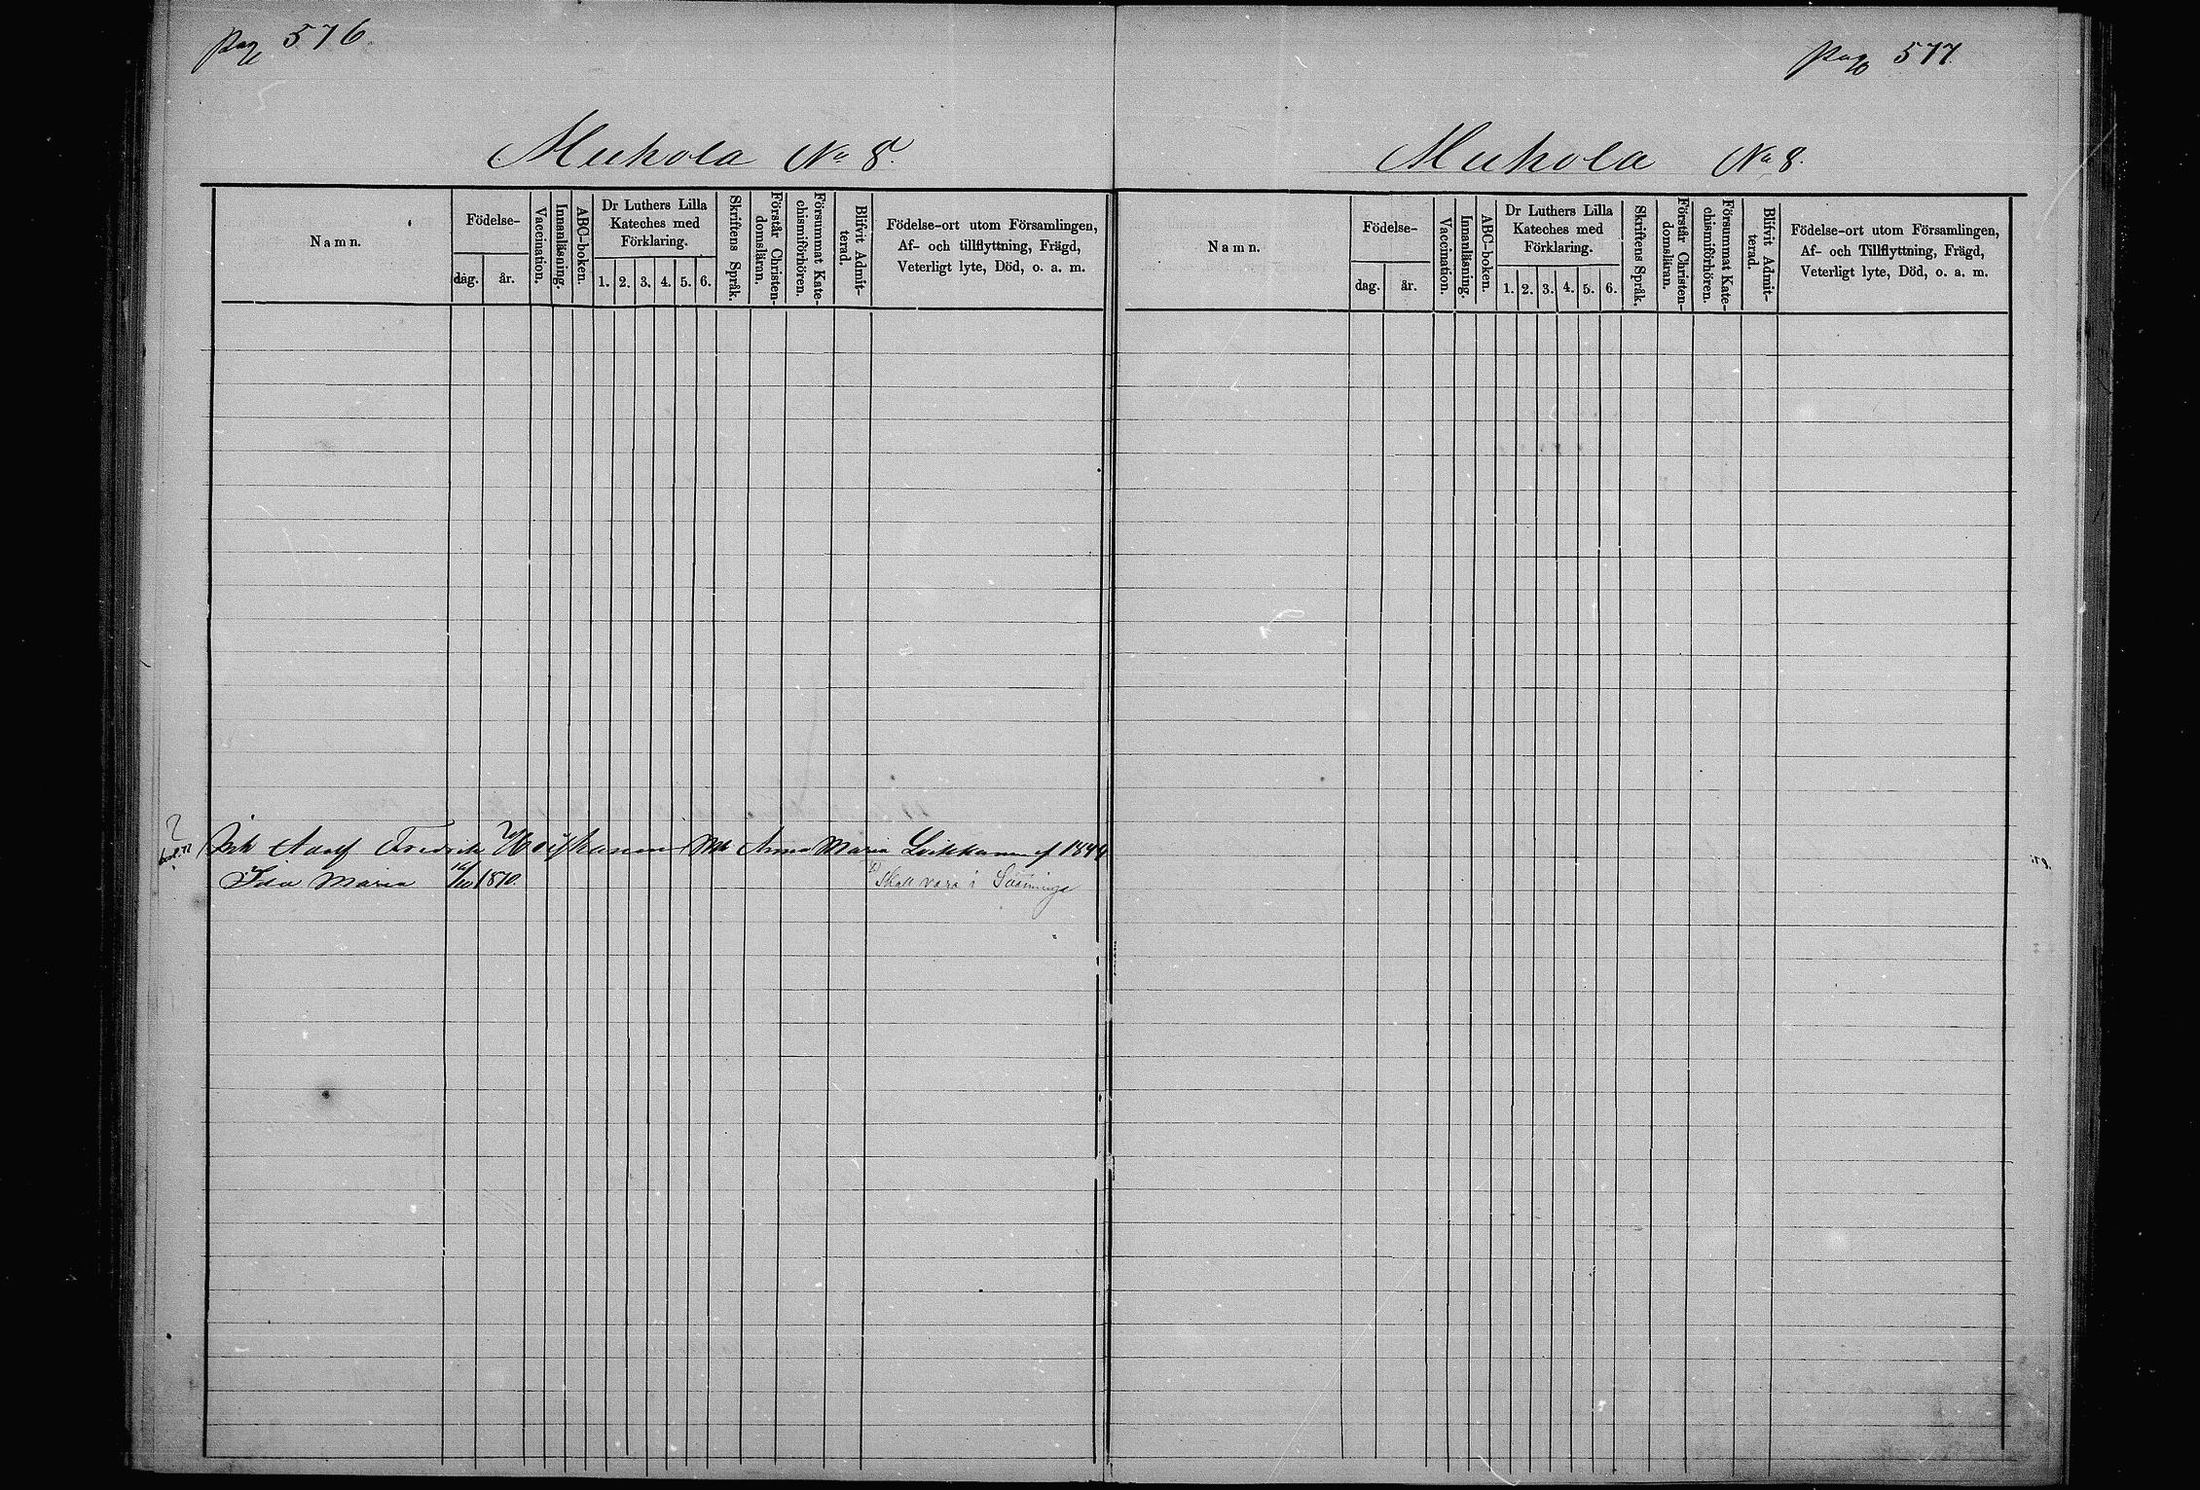 Pag 576.
Muhola No 8.
Namn.
Födelse-
dag.
år.
Vaccination.
Innanläsning.
ABC-boken.
Dr Luthers Lilla
Kateches med
Förklaring.
1. 2. 3. 4. 5. 6.
Skriftens Språk.
Förstår Christen-
domsläran.
Försummat Kate-
chismiförhören.
Blifvit Admit-
terad.
Födelse-ort utom Församlingen,
Af- och tillflyttning, Frägd,
Veterligt lyte, Död, o. a. m.
Adolf Fredrik Anna Maria
Ida Maria 1870.
Skall vara i
pag 577
Muhola No 8.
Namn.
Födelse-
dag.
år.
Vaccination.
Innanläsning.
ABC-boken.
Dr Luthers Lilla
Kateches med
Förklaring.
1. 2. 3. 4. 5. 6.
Skriftens Språk.
Förstår Christen-
domsläran.
Försummat Kate-
chismiförhören.
Blifvit Admit-
terad.
Födelse-ort utom Församlingen,
Af- och Tillflyttning, Frägd,
Veterligt lyte, Död, o. a. m.